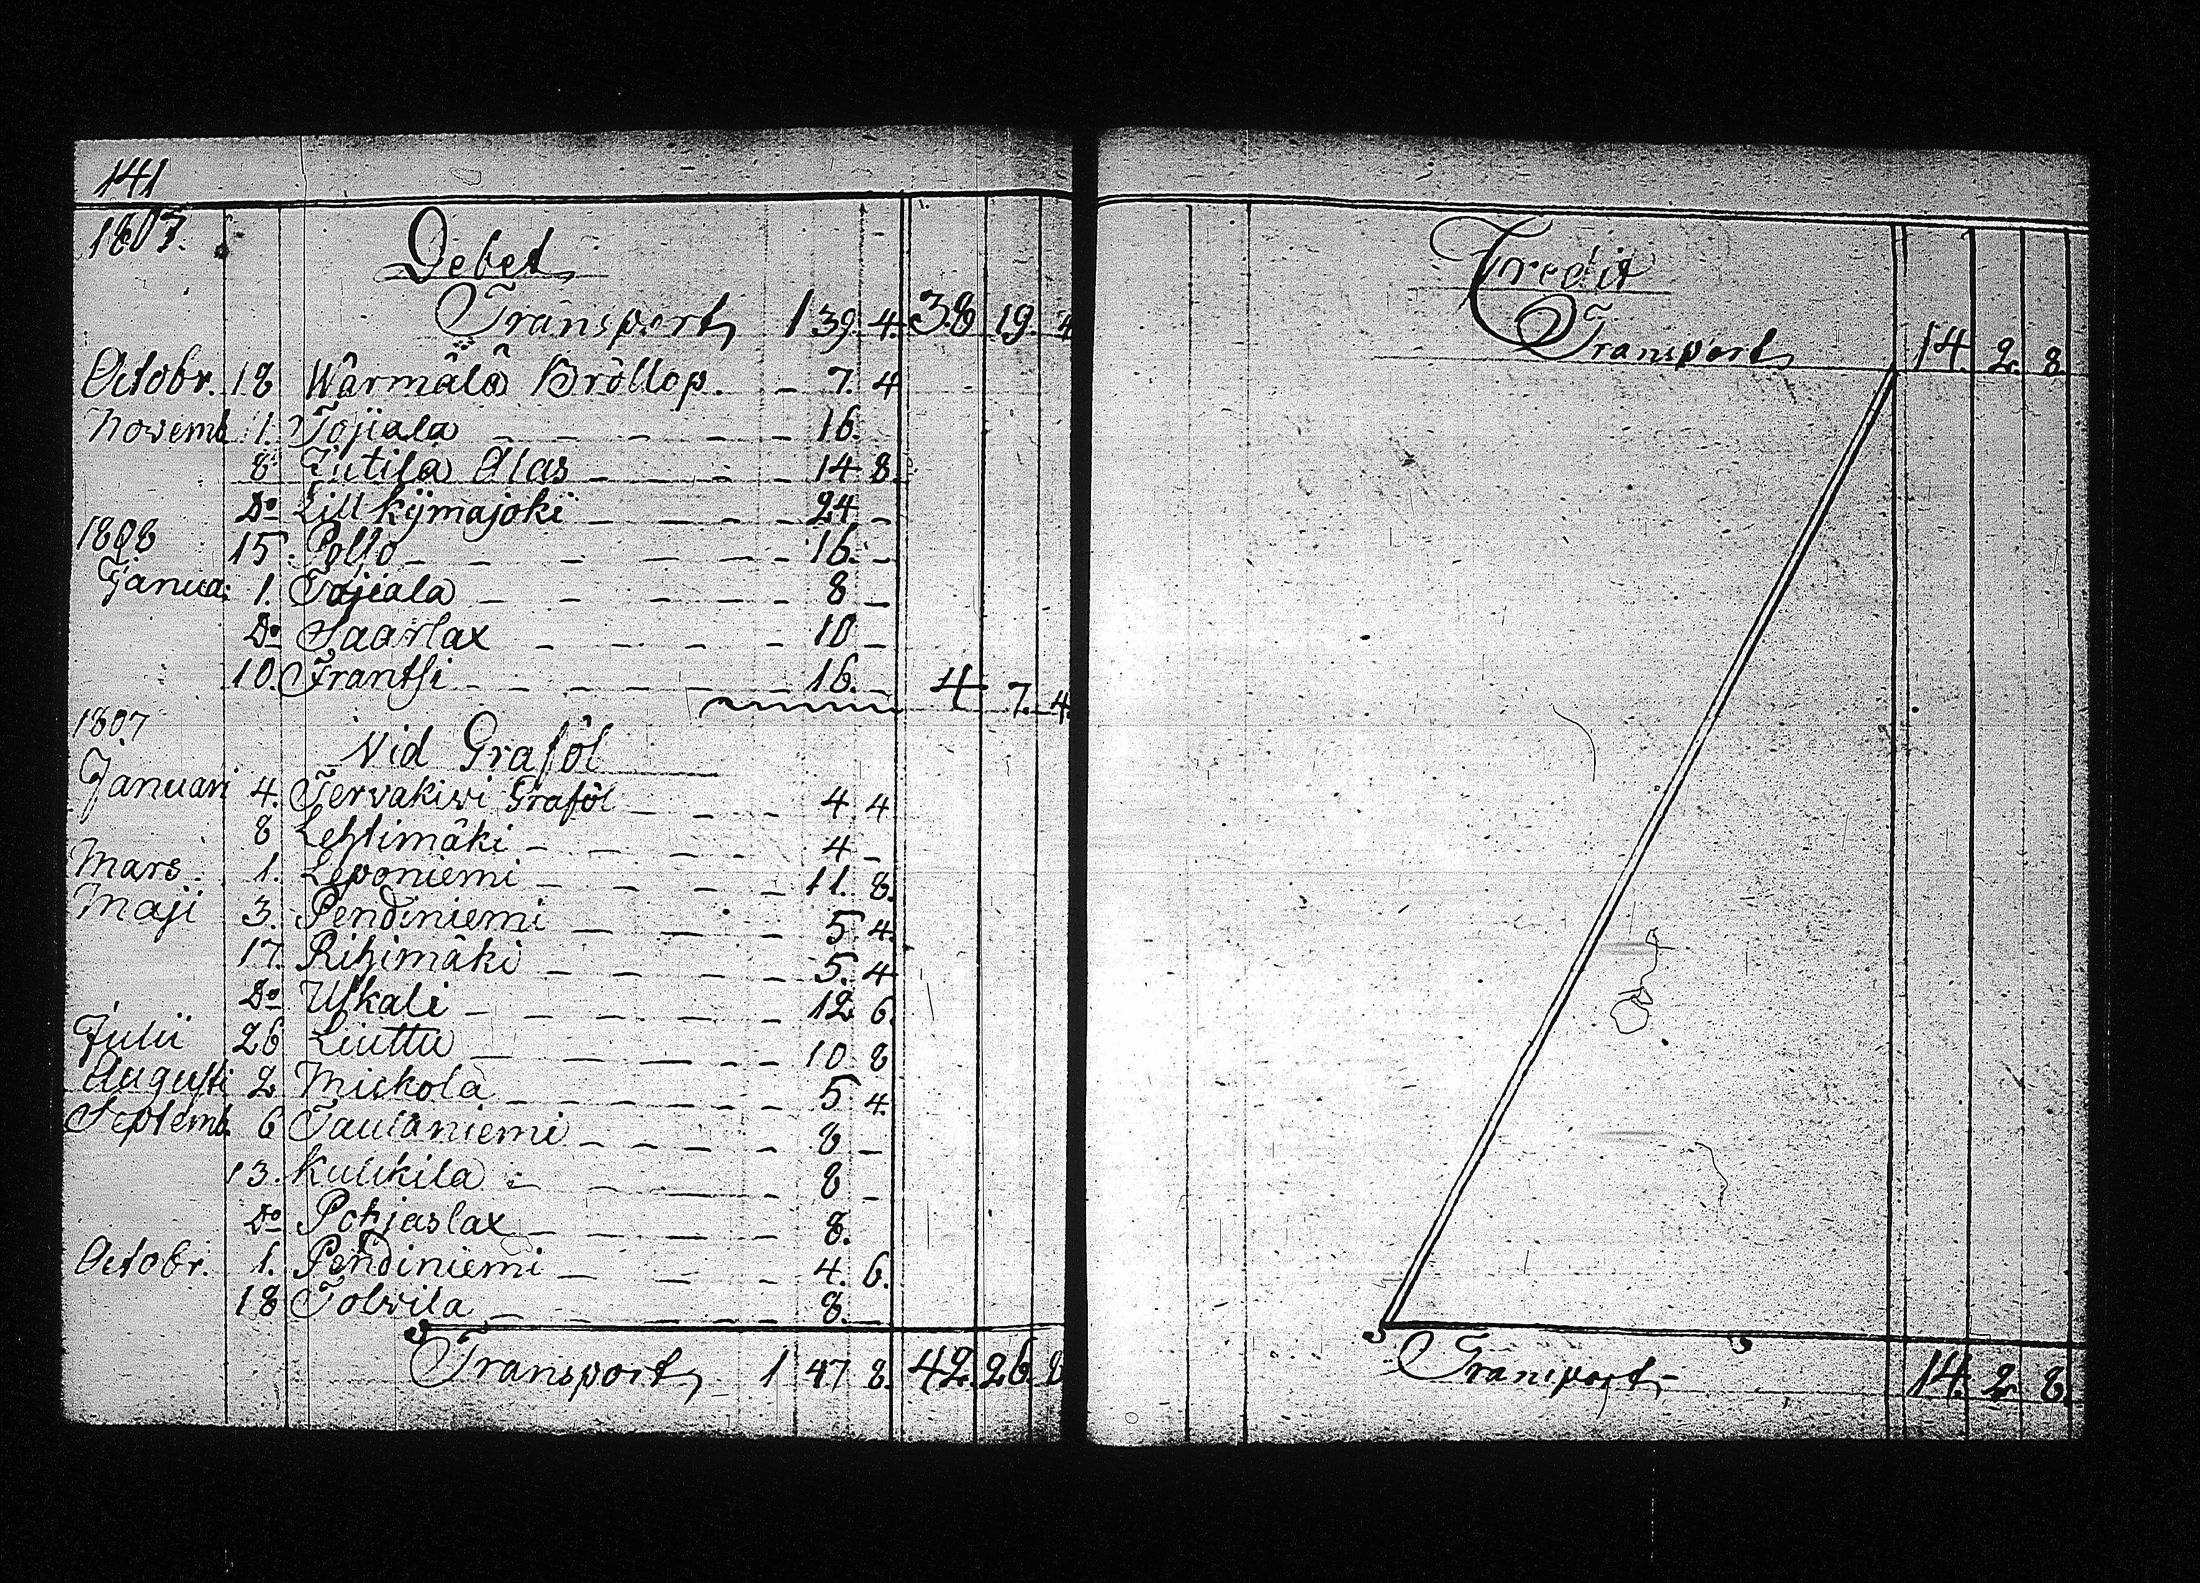 141
1807.
Debet
Transport 1 39. 4. 38 19. 4
Octobr. 18 Wärmälä Bröllop. - 7. 4
Novemb. 1. Tojiala - - - - - 16.
8. Jutila Alas - - - 14 8.
Do Lill kijmajoki - - - - 24 -
1808
15. Pollo - - - - - 16. -
Janua: 1. Tojiala - - - - - 8 -
Do Saarlax - - - - 10 -
10. Frantsi - - - - - 16. - 4 7. 4.
1807
Vid Graföl
Januari 4. Tervakiwi Graföl - - - 4 4
8 Lehtimäki - - - - 4 -
Mars. 1. Leponiemi - - - - 11. 8.
Maji 3. Pendiniemi - - - - 5 4.
17. Rihimäki - - - - 5. 4
Do Uskali - - - - - 12 6.
Julii 26 Liuttu - - - - 10 8
Augusti 2 Mickola - - - - - 5 4.
Septemb. 6 Taulaniemi - - - - 8 -
13. Kulikila - - - - 8 -
Do Pohjaslax - - - - 8.
Octobr. 1. Pendiniemi - - - - 4. 6.
18 Tolvila - - - - - 8. -
Transport 1 47 8. 42. 26. 8
Credit
Transport 14. 2. 8
Transport 14. 2. 8.